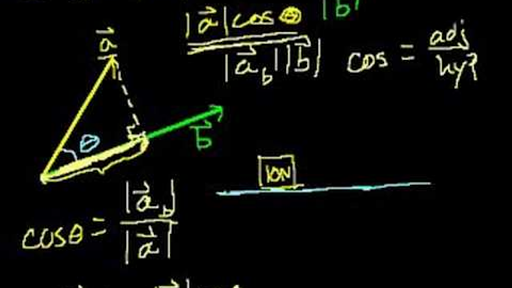 |a⃗| cos θ |b|
|a⃗_b| |b⃗|
cos = adj/hyp
a⃗
θ
b⃗
10N
cosθ = |a⃗_b| / |a⃗|